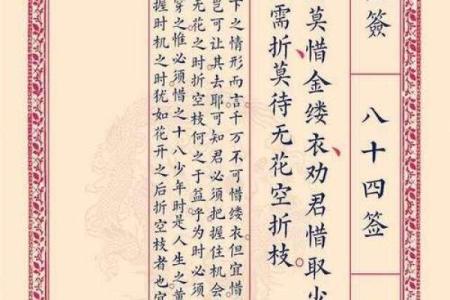 簽
八十四签
莫惜金缕衣劝君惜取少
需折莫待无花空折枝。
之情形而言千万不可惜缕衣但宜惜
岂可让其去耶可知君必须把握住机会
无花之时折空枝何之于益乎为时必须
穿之惟必须惜之十八少年时是人生之黄
握时机之时犹如花开之后折空枝者也宜